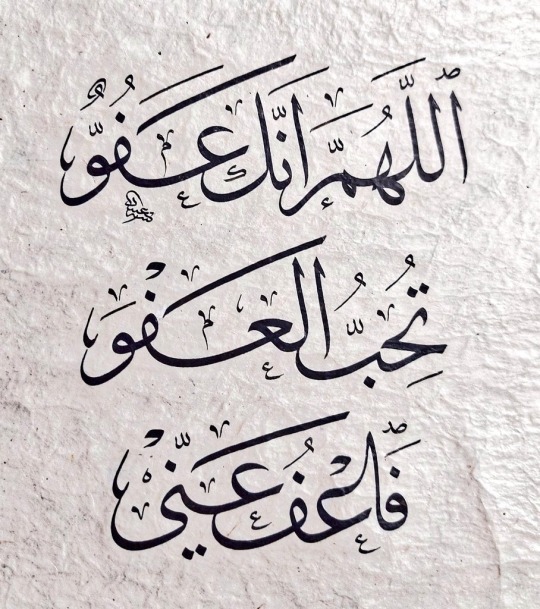 ٱللَّهُمَّ إِنَّكَ عَفُوٌّ
تُحِبُّ الْعَفْوَ
فَٱعْفُ عَنِّي